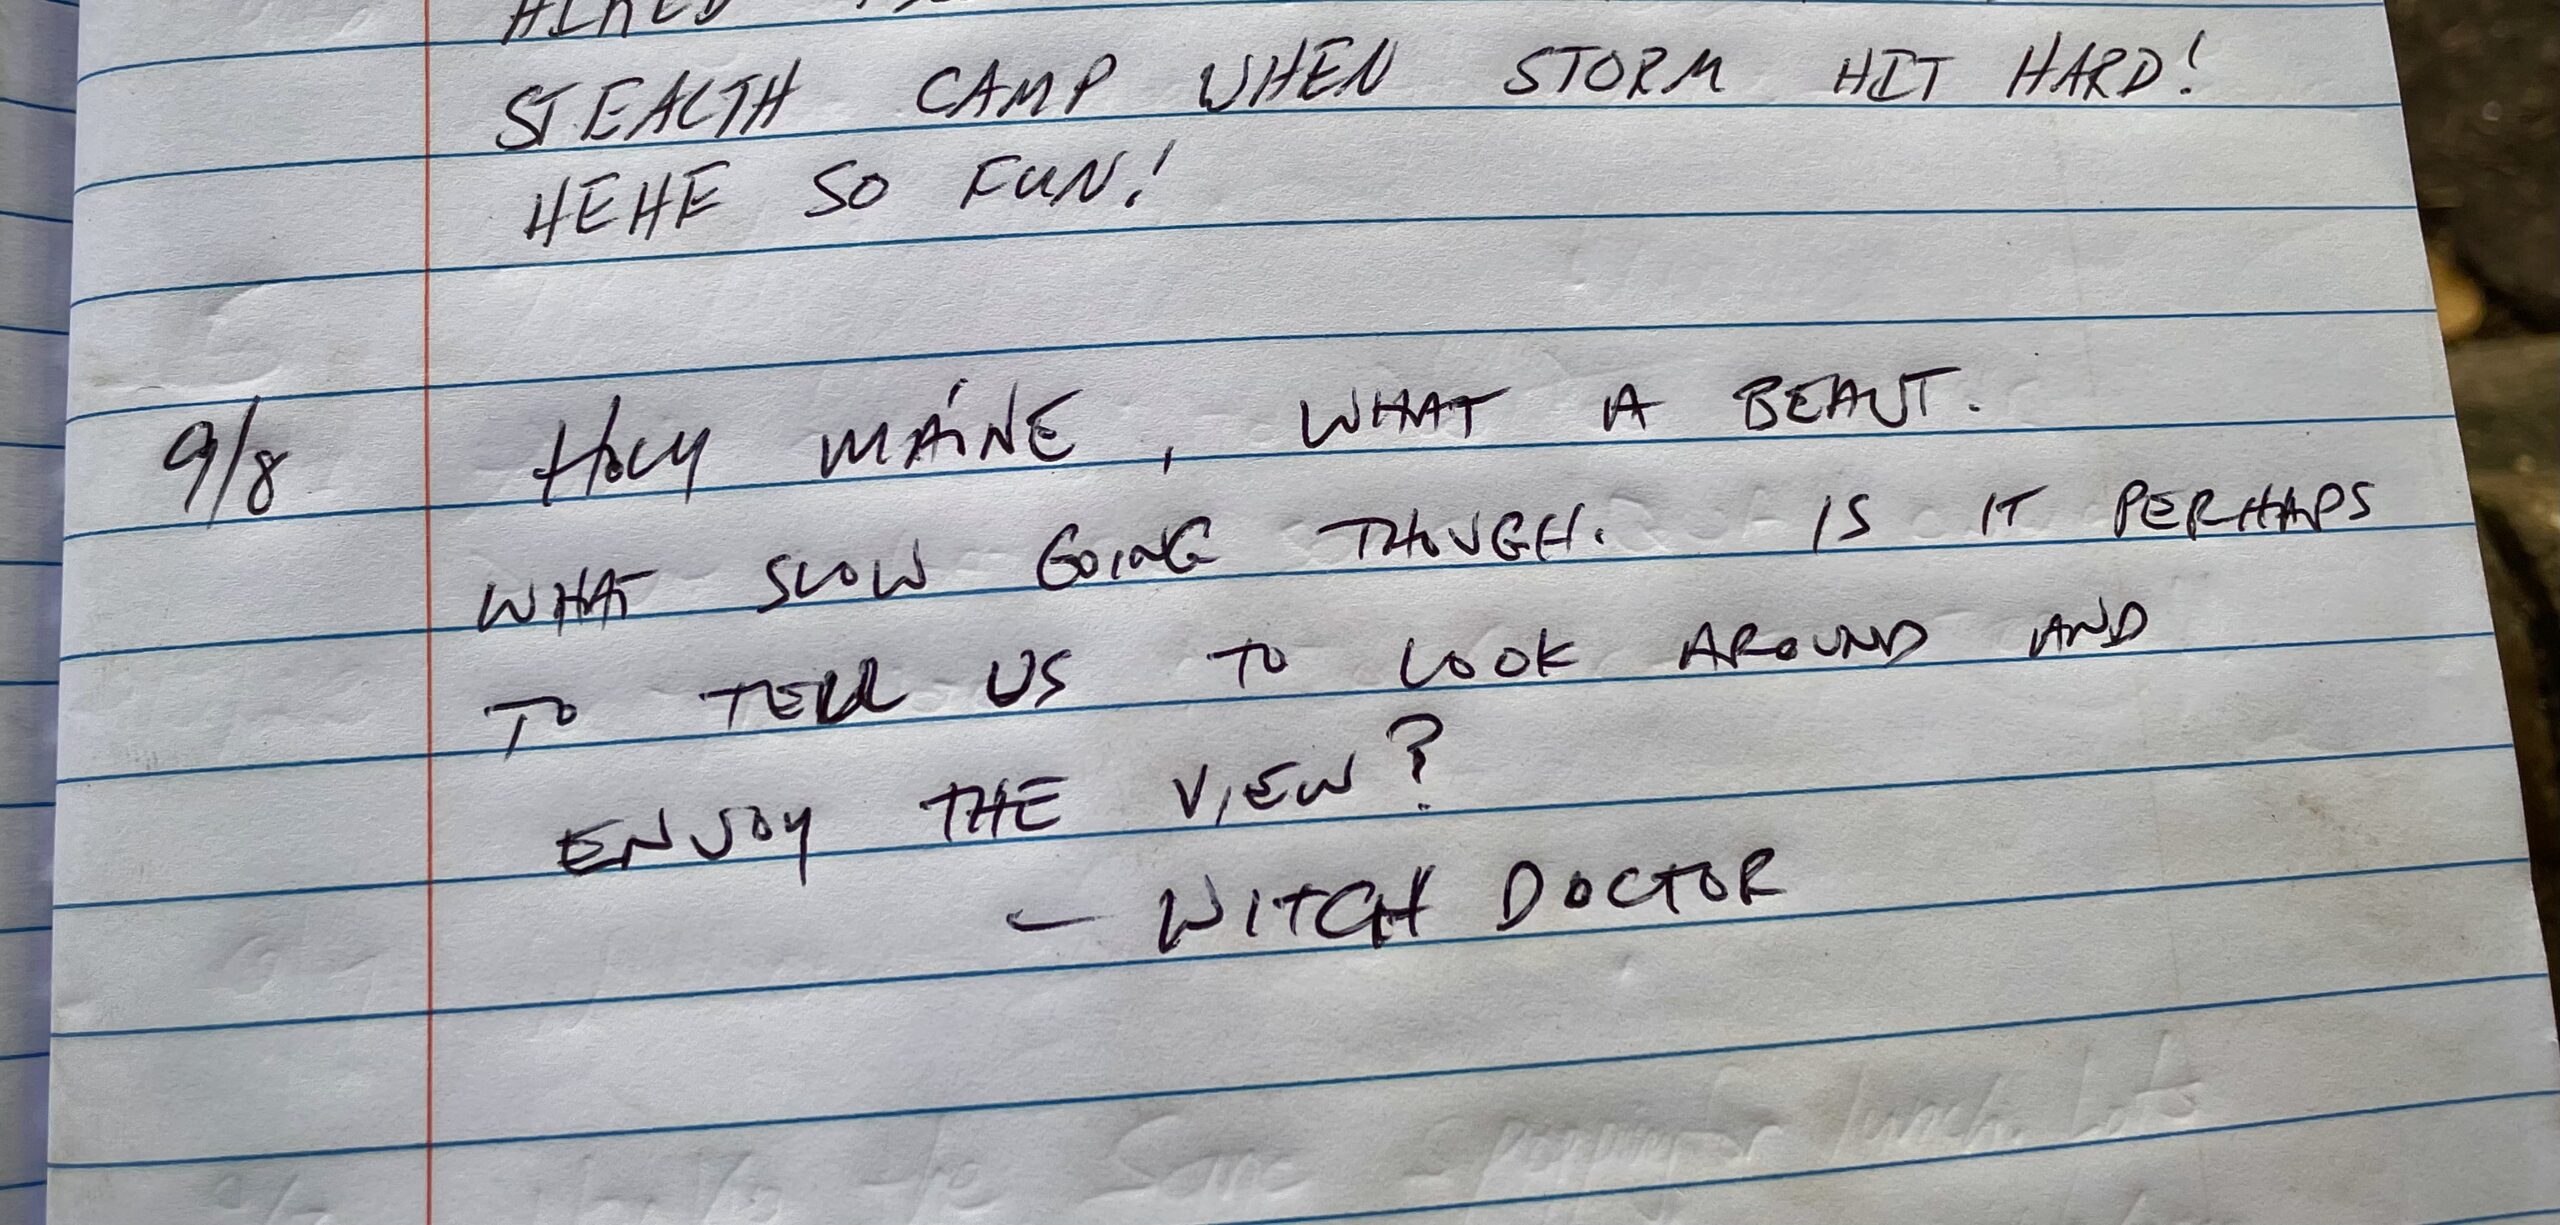 STEALTH CAMP WHEN STORM HIT HARD!
HEHE SO FUN!
9/8 HOLY MAINE, WHAT A BEAUT.
WHAT SLOW GOING THOUGH. IS IT PERHAPS
TO TELL US TO LOOK AROUND AND
ENJOY THE VIEW?
- WITCH DOCTOR